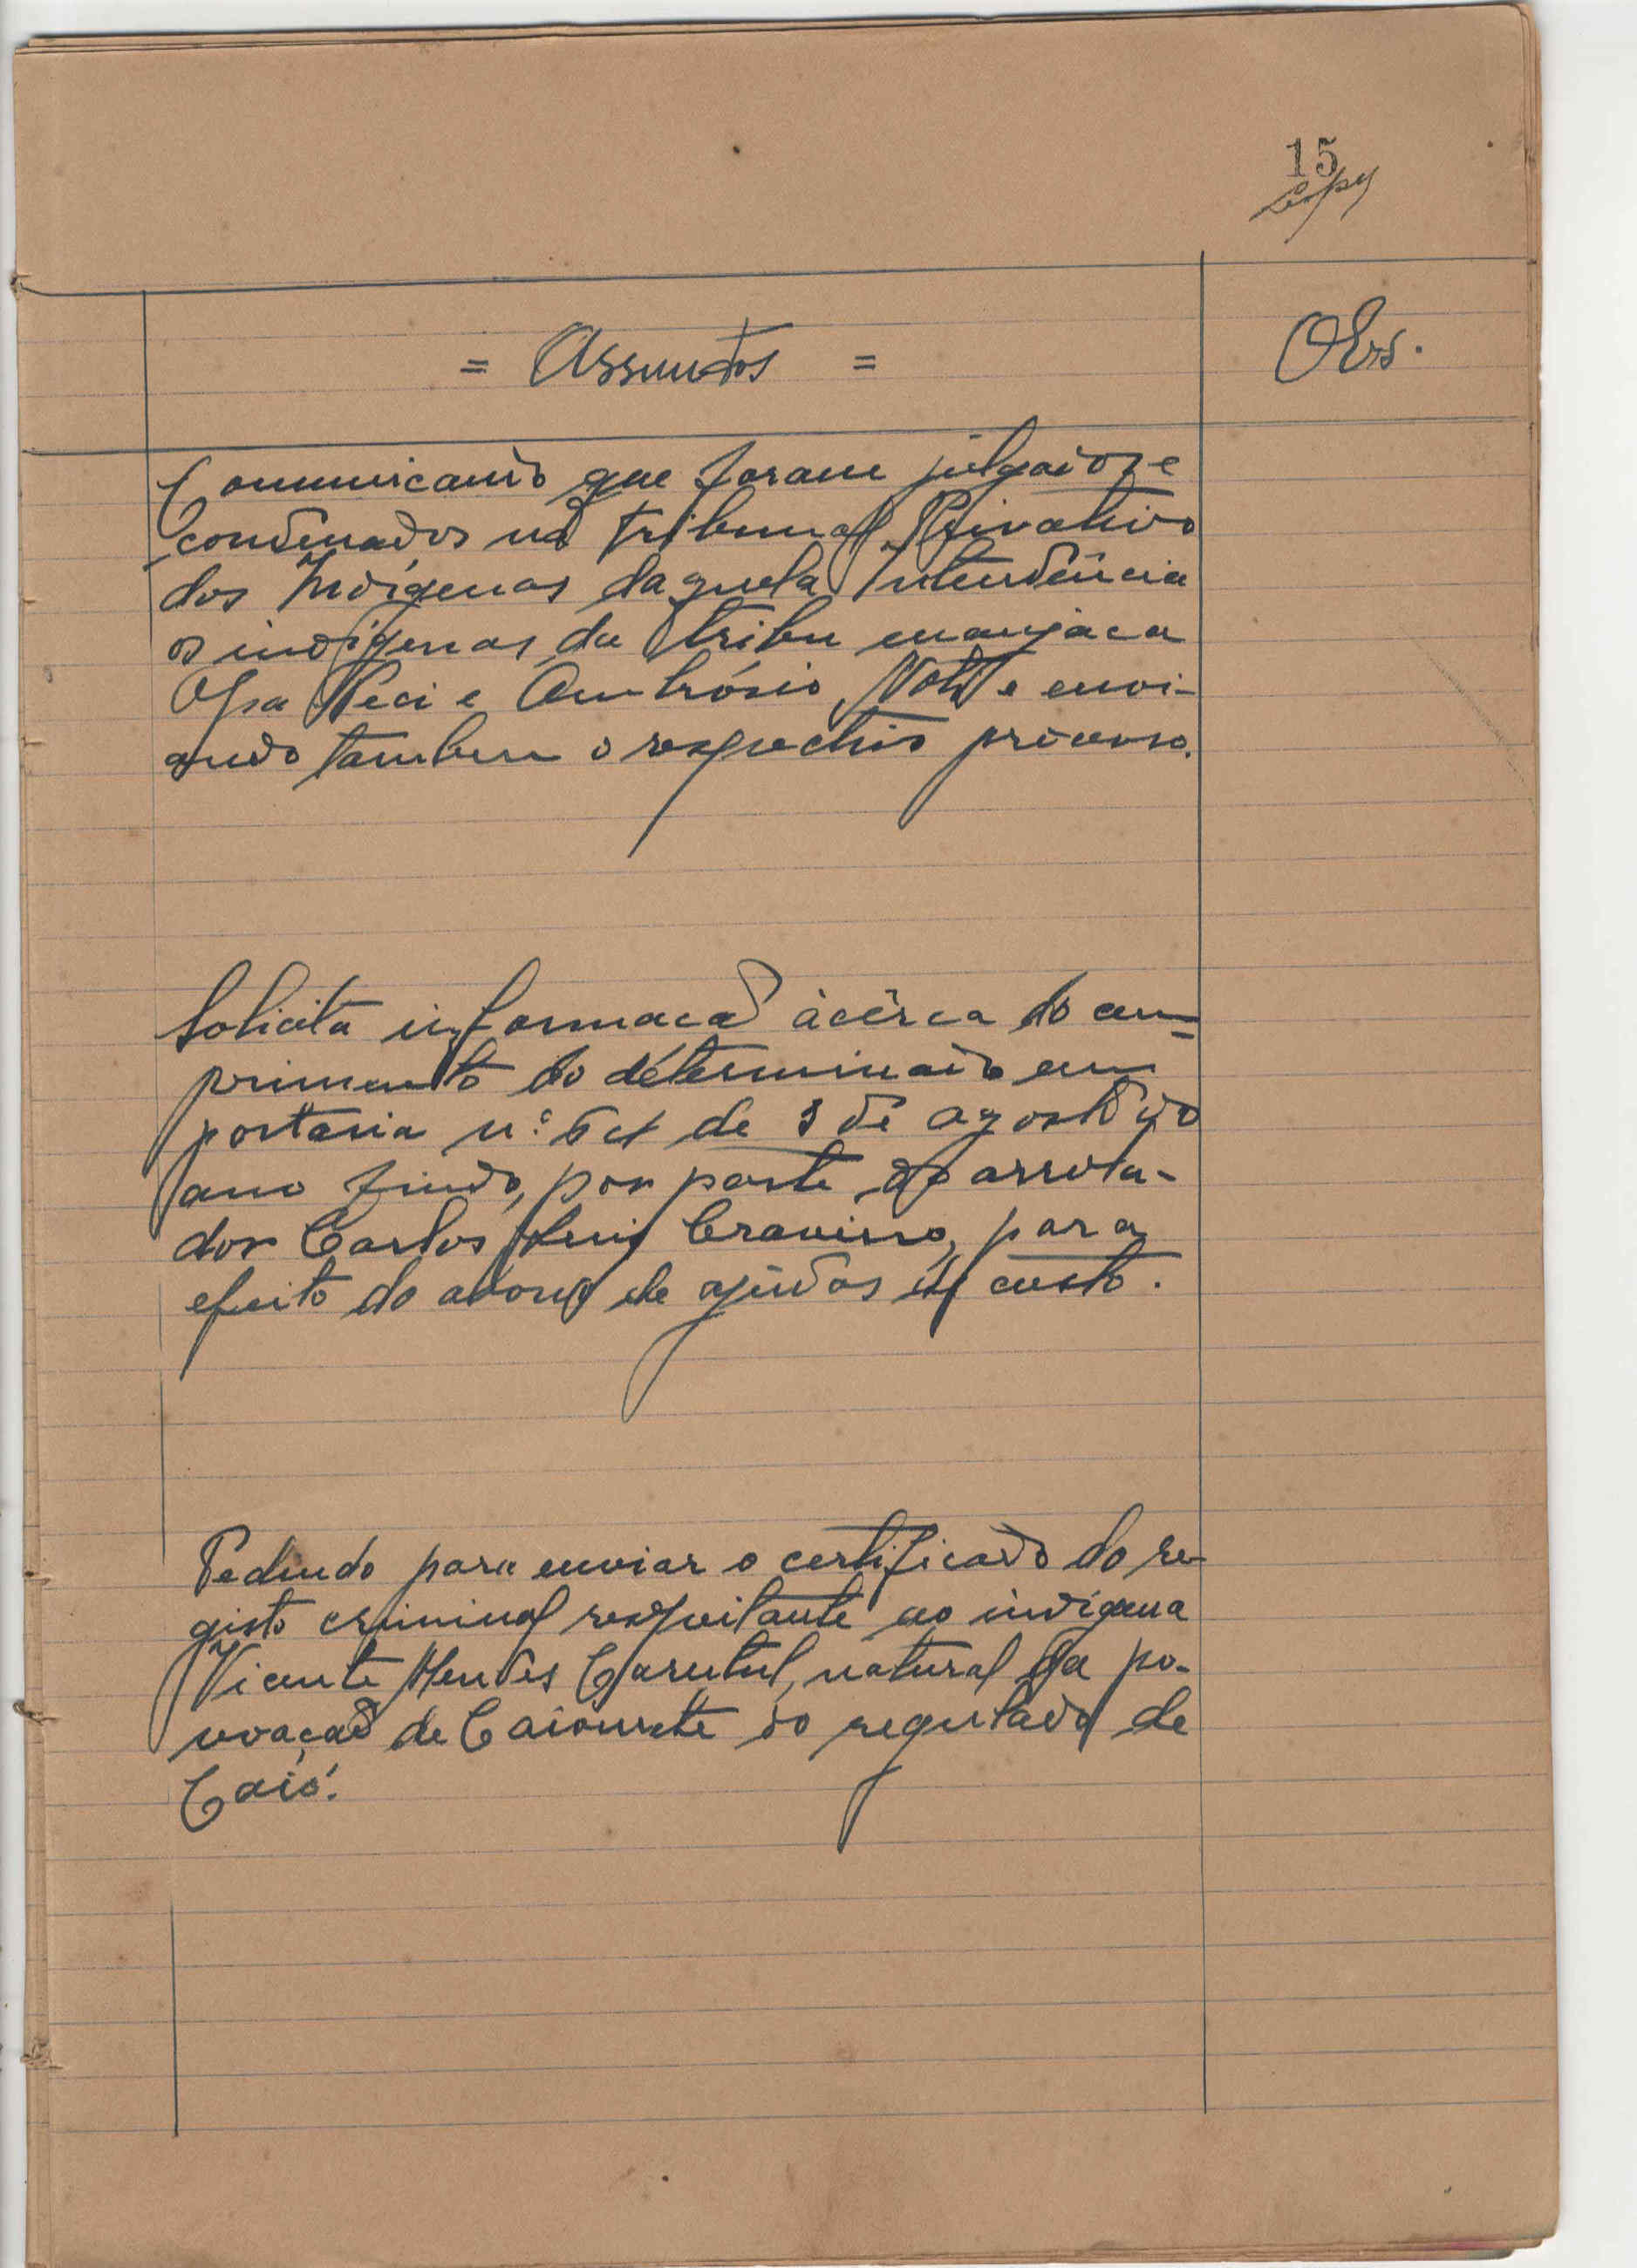 15
= Assuntos =
Obs.
Comunicando que foram julgados e
condenados no Tribunal Privativo
dos Indígenas daquela Intendência
os indígenas da tribu manjaca
e Ambrósio e envi-
ando tambem o respectivo processo.
Solicita informacão àcêrca do cum-
primento do determinado em
portaria n.º de de agosto do
ano findo, por parte do arrola-
dor Carlos Luis para
efeito do abono de ajudas de custo.
Pedindo para enviar o certificado do re-
gisto criminal respeitante ao indígena
Vicente Mendes natural da po-
voação de do regulado de
Caió.